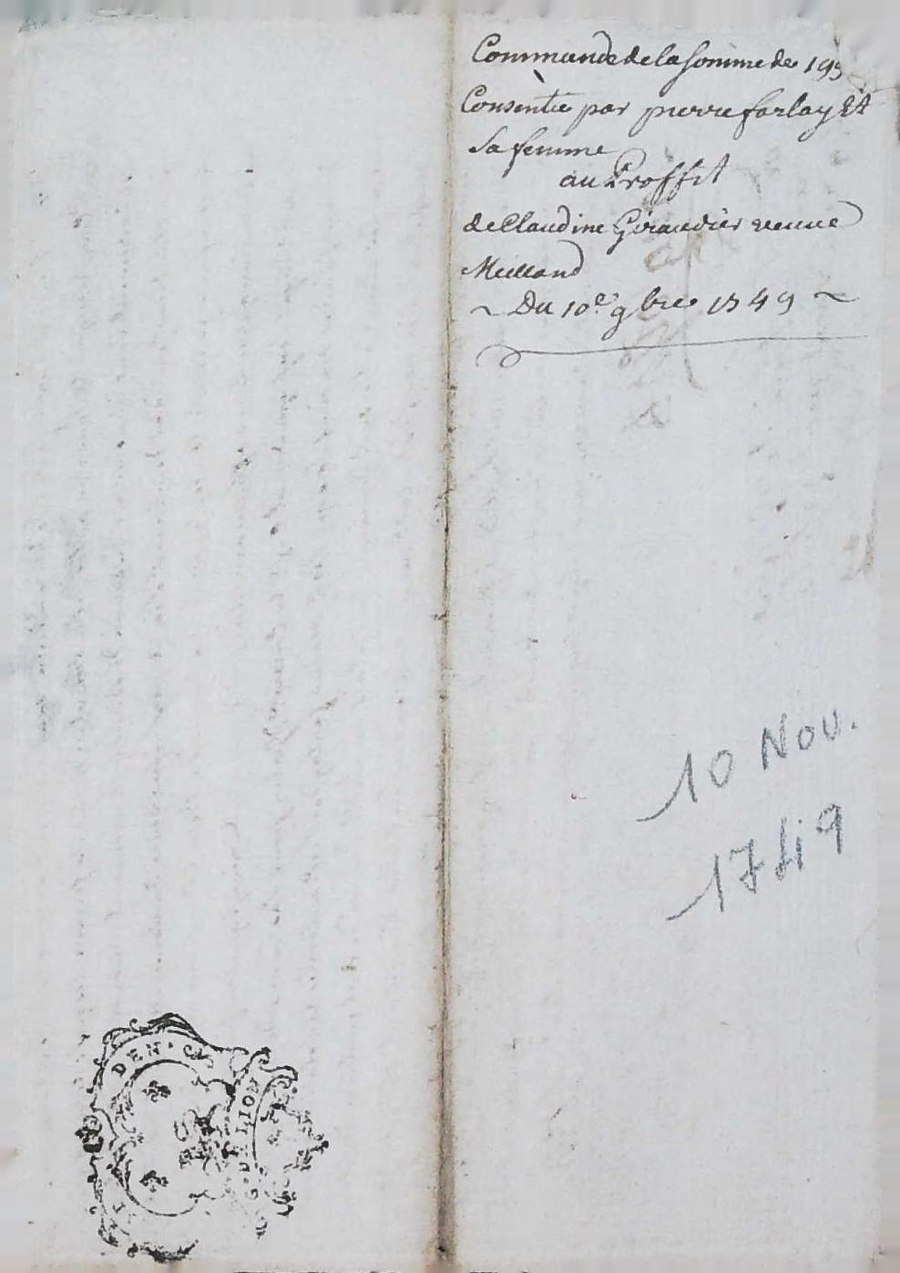 Commande de la somme de 195
Consentie par pierre farlay Et
Sa femme
au Proffit
de Claudine Giraudier veuve
~ Du 10e 9bre 1749 ~
10 Nov.
1749
DEN.
G. DE LION